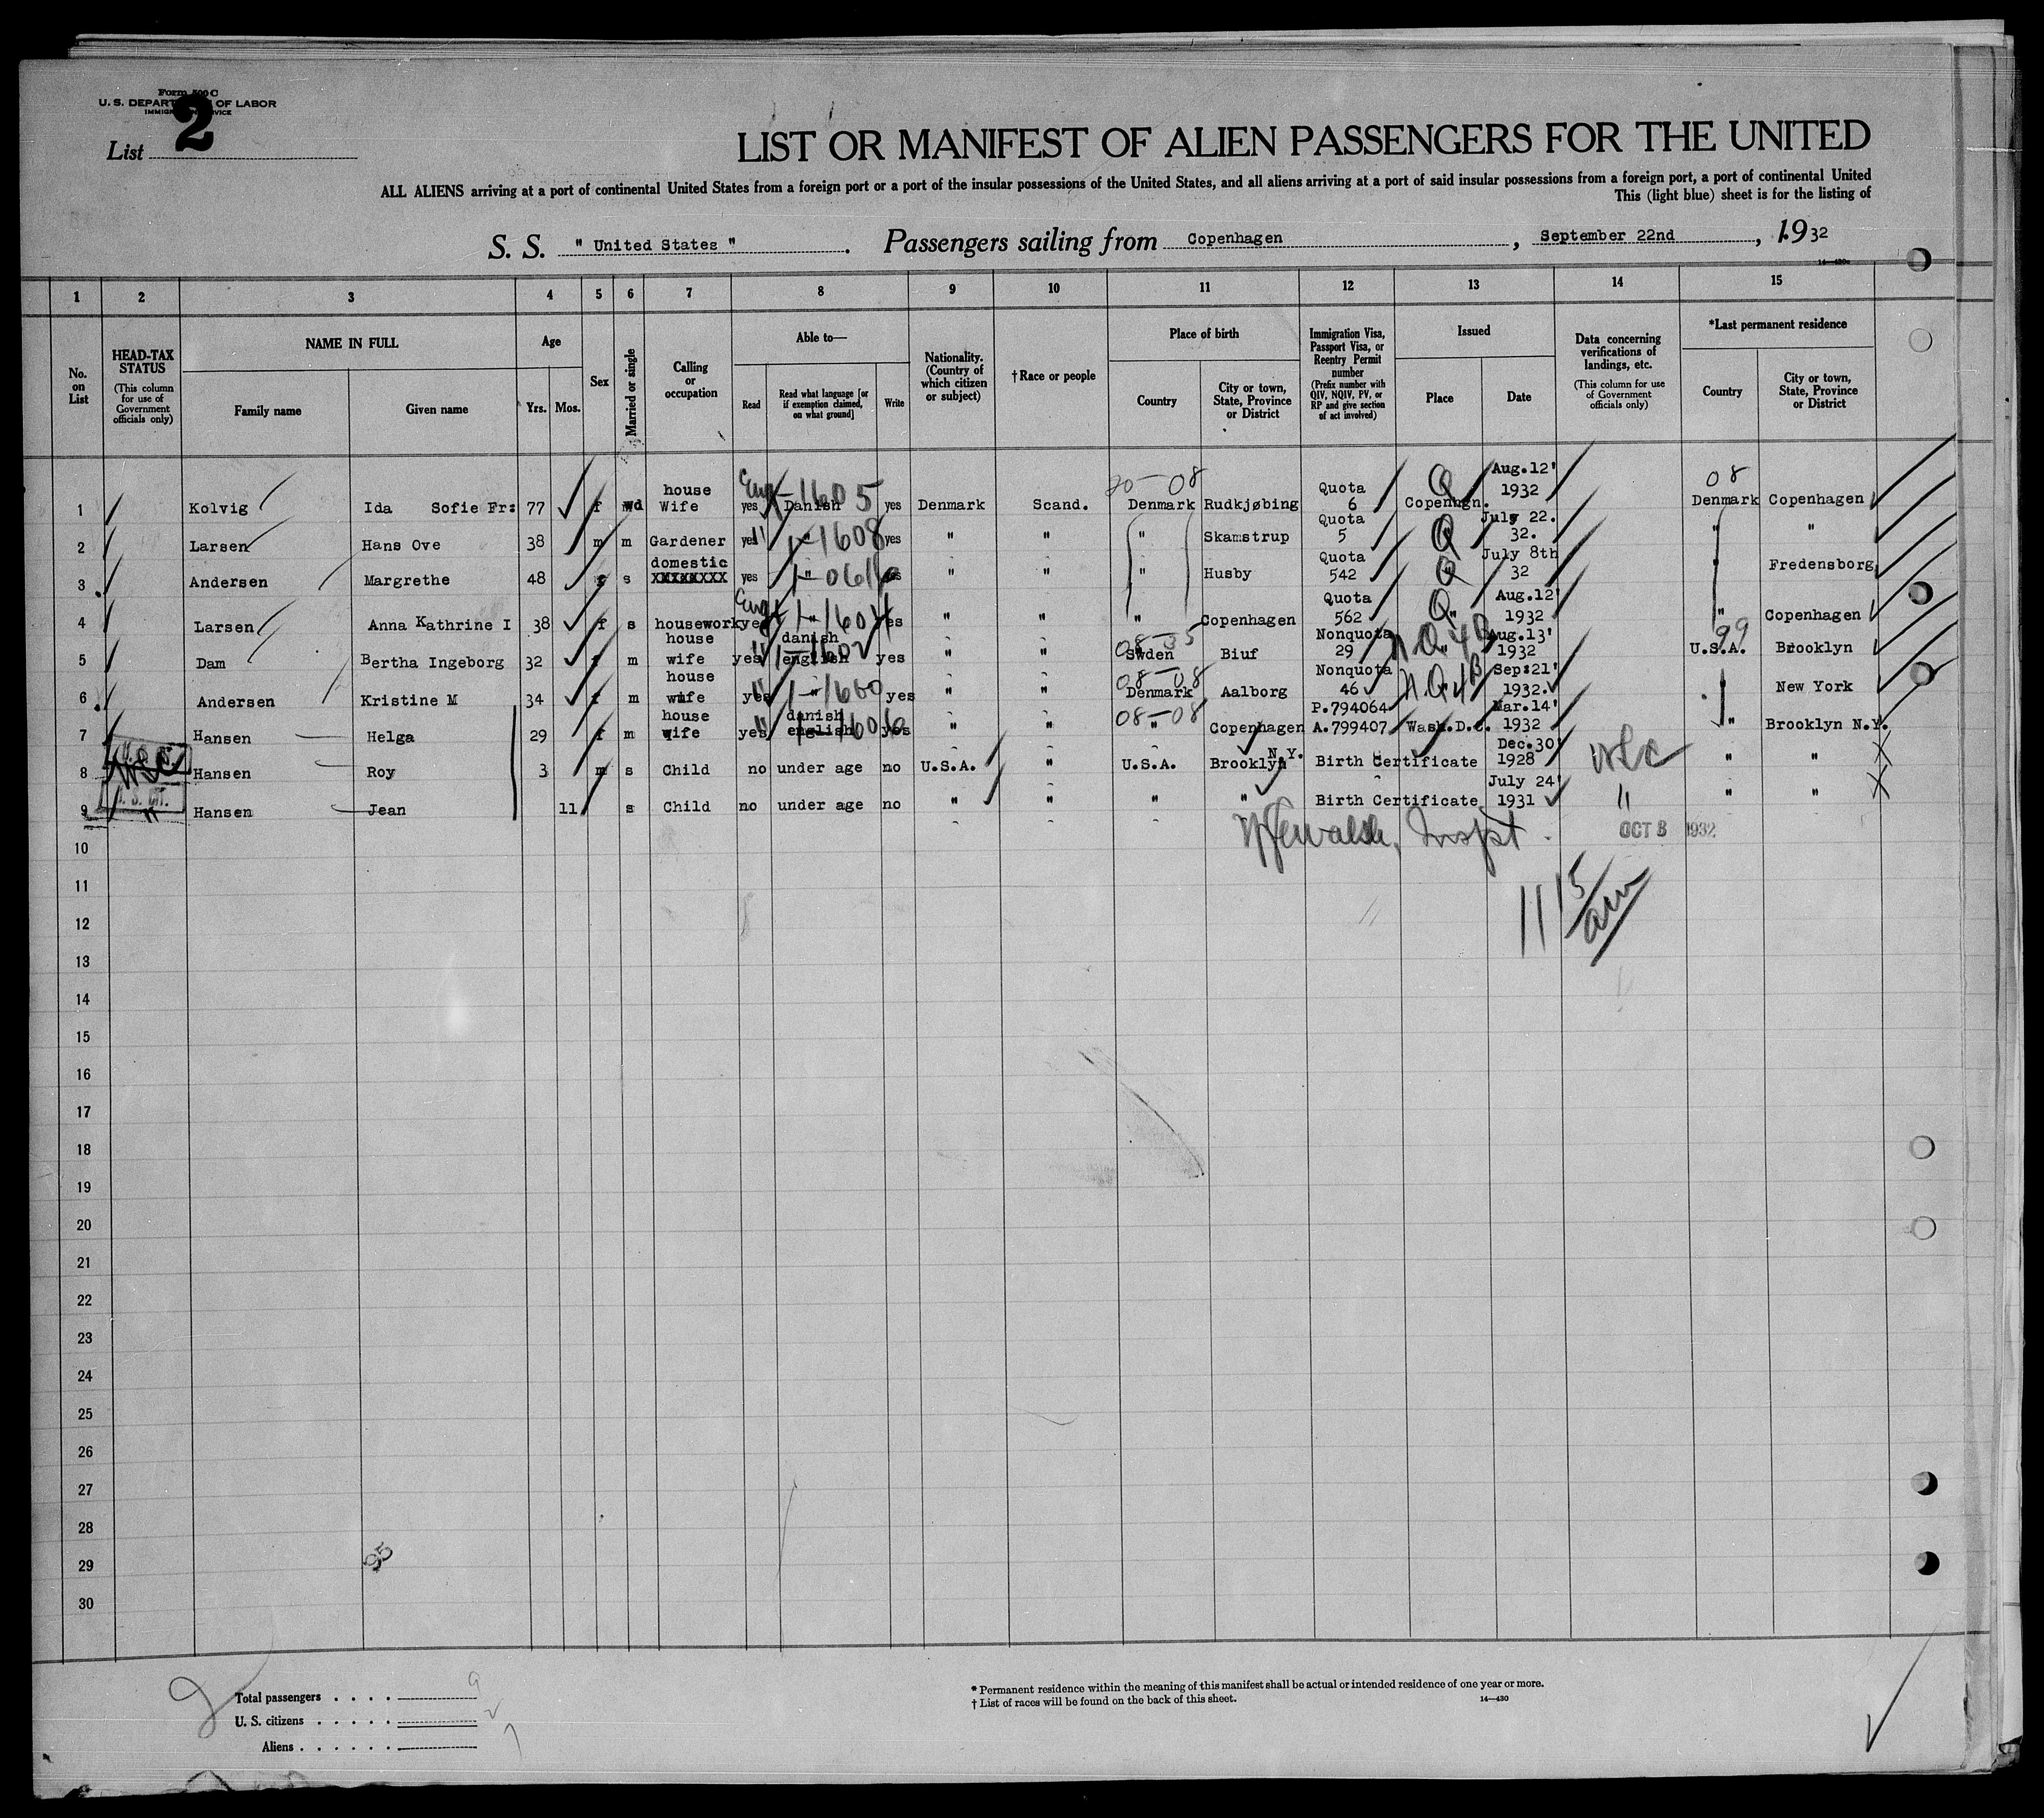 Form 500 C
U. S. DEPARTMENT OF LABOR
IMMIGRATION SERVICE
List 2
LIST OR MANIFEST OF ALIEN PASSENGERS FOR THE UNITED
ALL ALIENS arriving at a port of continental United States from a foreign port or a port of the insular possessions of the United States, and all aliens arriving at a port of said insular possessions from a foreign port, a port of continental United
This (light blue) sheet is for the listing of
S. S. " United States ". Passengers sailing from Copenhagen, September 22nd, 1932
14—430
1 2 3 4 5 6 7 8 9 10 11 12 13 14 15
No. on List
HEAD-TAX STATUS (This column for use of Government officials only)
NAME IN FULL
Family name
Given name
Age
Yrs. Mos.
Sex
Married or single
Calling or occupation
Able to—
Read
Read what language [or if exemption claimed, on what ground]
Write
Nationality. (Country of which citizen or subject)
† Race or people
Place of birth
Country
City or town, State, Province or District
Immigration Visa, Passport Visa, or Reentry Permit number (Prefix number with QIV, NQIV, PV, or RP and give section of act involved)
Issued
Place
Date
Data concerning verifications of landings, etc. (This column for use of Government officials only)
*Last permanent residence
Country
City or town, State, Province or District
1 Kolvig Ida Sofie Fr: 77 f wd house Wife yes Eng 1-1605 Danish yes Denmark Scand. 20-08 Denmark Rudkjøbing Quota 6 Q Copenhgn. Aug.12' 1932 08 Denmark Copenhagen
2 Larsen Hans Ove 38 m m Gardener yes " 1-1608 yes " " " Skamstrup Quota 5 Q July 22. 32. " "
3 Andersen Margrethe 48 f s domestic XXXXXXXX yes " yes " " " Husby Quota 542 Q July 8th 32 " Fredensborg
4 Larsen Anna Kathrine I 38 f s housework yes Eng " yes " " " Copenhagen Quota 562 Q " Aug.12' 1932 " Copenhagen
5 Dam Bertha Ingeborg 32 f m house wife yes " danish english 1-1602 yes " " 08-35 Swden Biuf Nonquota 29 N.Q 4B Aug.13' 1932 99 U.S.A. Brooklyn
6 Andersen Kristine M 34 f m house wife yes " 1-1600 yes " " 08-08 Denmark Aalborg Nonquota 46 N.Q 4B Sep:21' 1932. New York
7 Hansen Helga 29 f m house wife yes " danish english yes " " 08-08 " Copenhagen P.794064 A.799407 Wash.D.C. Mar.14' 1932 " Brooklyn N.Y.
8 Hansen Roy 3 m s Child no under age no U.S.A. " U.S.A. Brooklyn N.Y. Birth Certificate Dec.30' 1928 " "
9 " Hansen Jean 11 s Child no under age no " " " " Birth Certificate July 24' 1931 " " "
10 Inspt. OCT 3 1932
11 11 15/am
12
13
14
15
16
17
18
19
20
21
22
23
24
25
26
27
28
29 95
30
Total passengers . . . . 9
U. S. citizens . . . . . 2
Aliens . . . . . . 7
* Permanent residence within the meaning of this manifest shall be actual or intended residence of one year or more.
† List of races will be found on the back of this sheet.
14—430